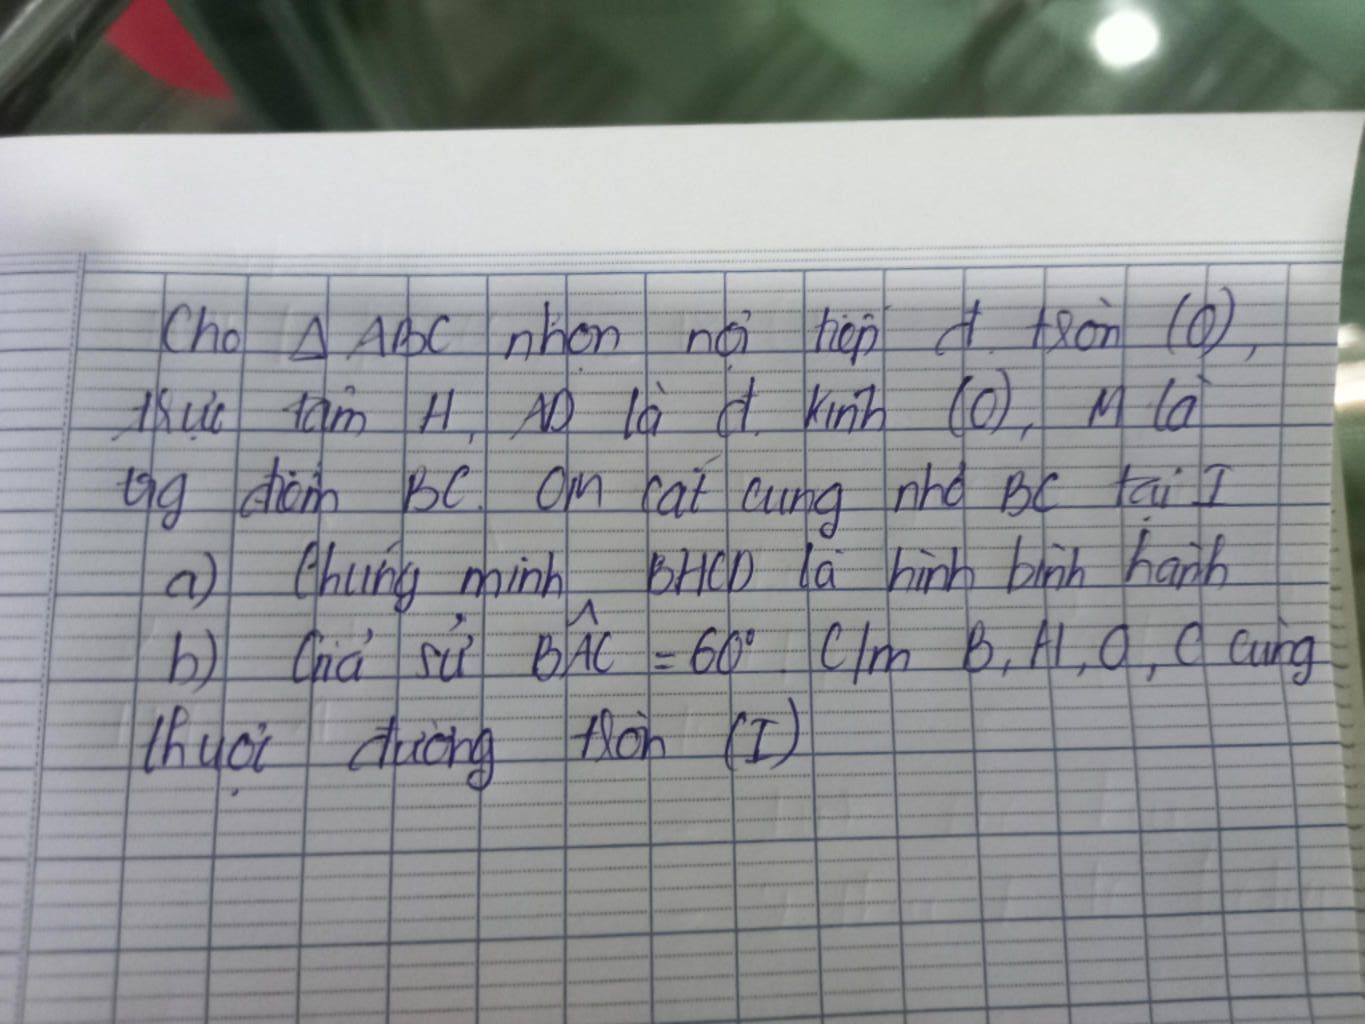 Cho Δ ABC nhọn nội tiếp đ. tròn (O),
trực tâm H, AD là đ. kính (O), M là
trg điểm BC. OM cắt cung nhỏ BC tại I
a) Chứng minh BHCD là hình bình hành
b) Giả sử BÂC = 60°. C/m B, H, O, C cùng
thuộc đường tròn (I)